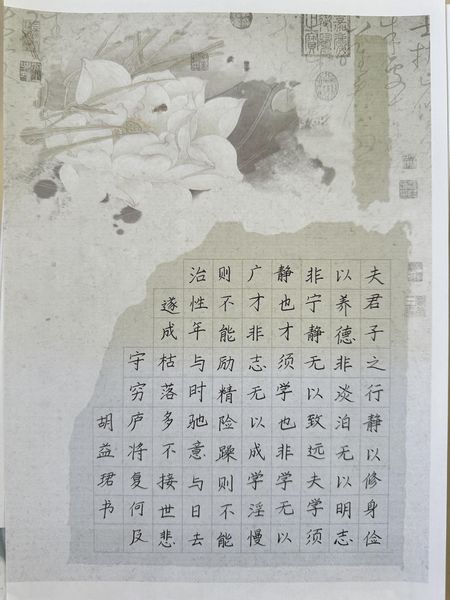 夫君子之行静以修身俭
以养德非淡泊无以明志
非宁静无以致远夫学须
静也才须学也非学无以
广才非志无以成学淫慢
则不能励精险躁则不能
治性年与时驰意与日去
遂成枯落多不接世悲
守穷庐将复何及
胡益珺书